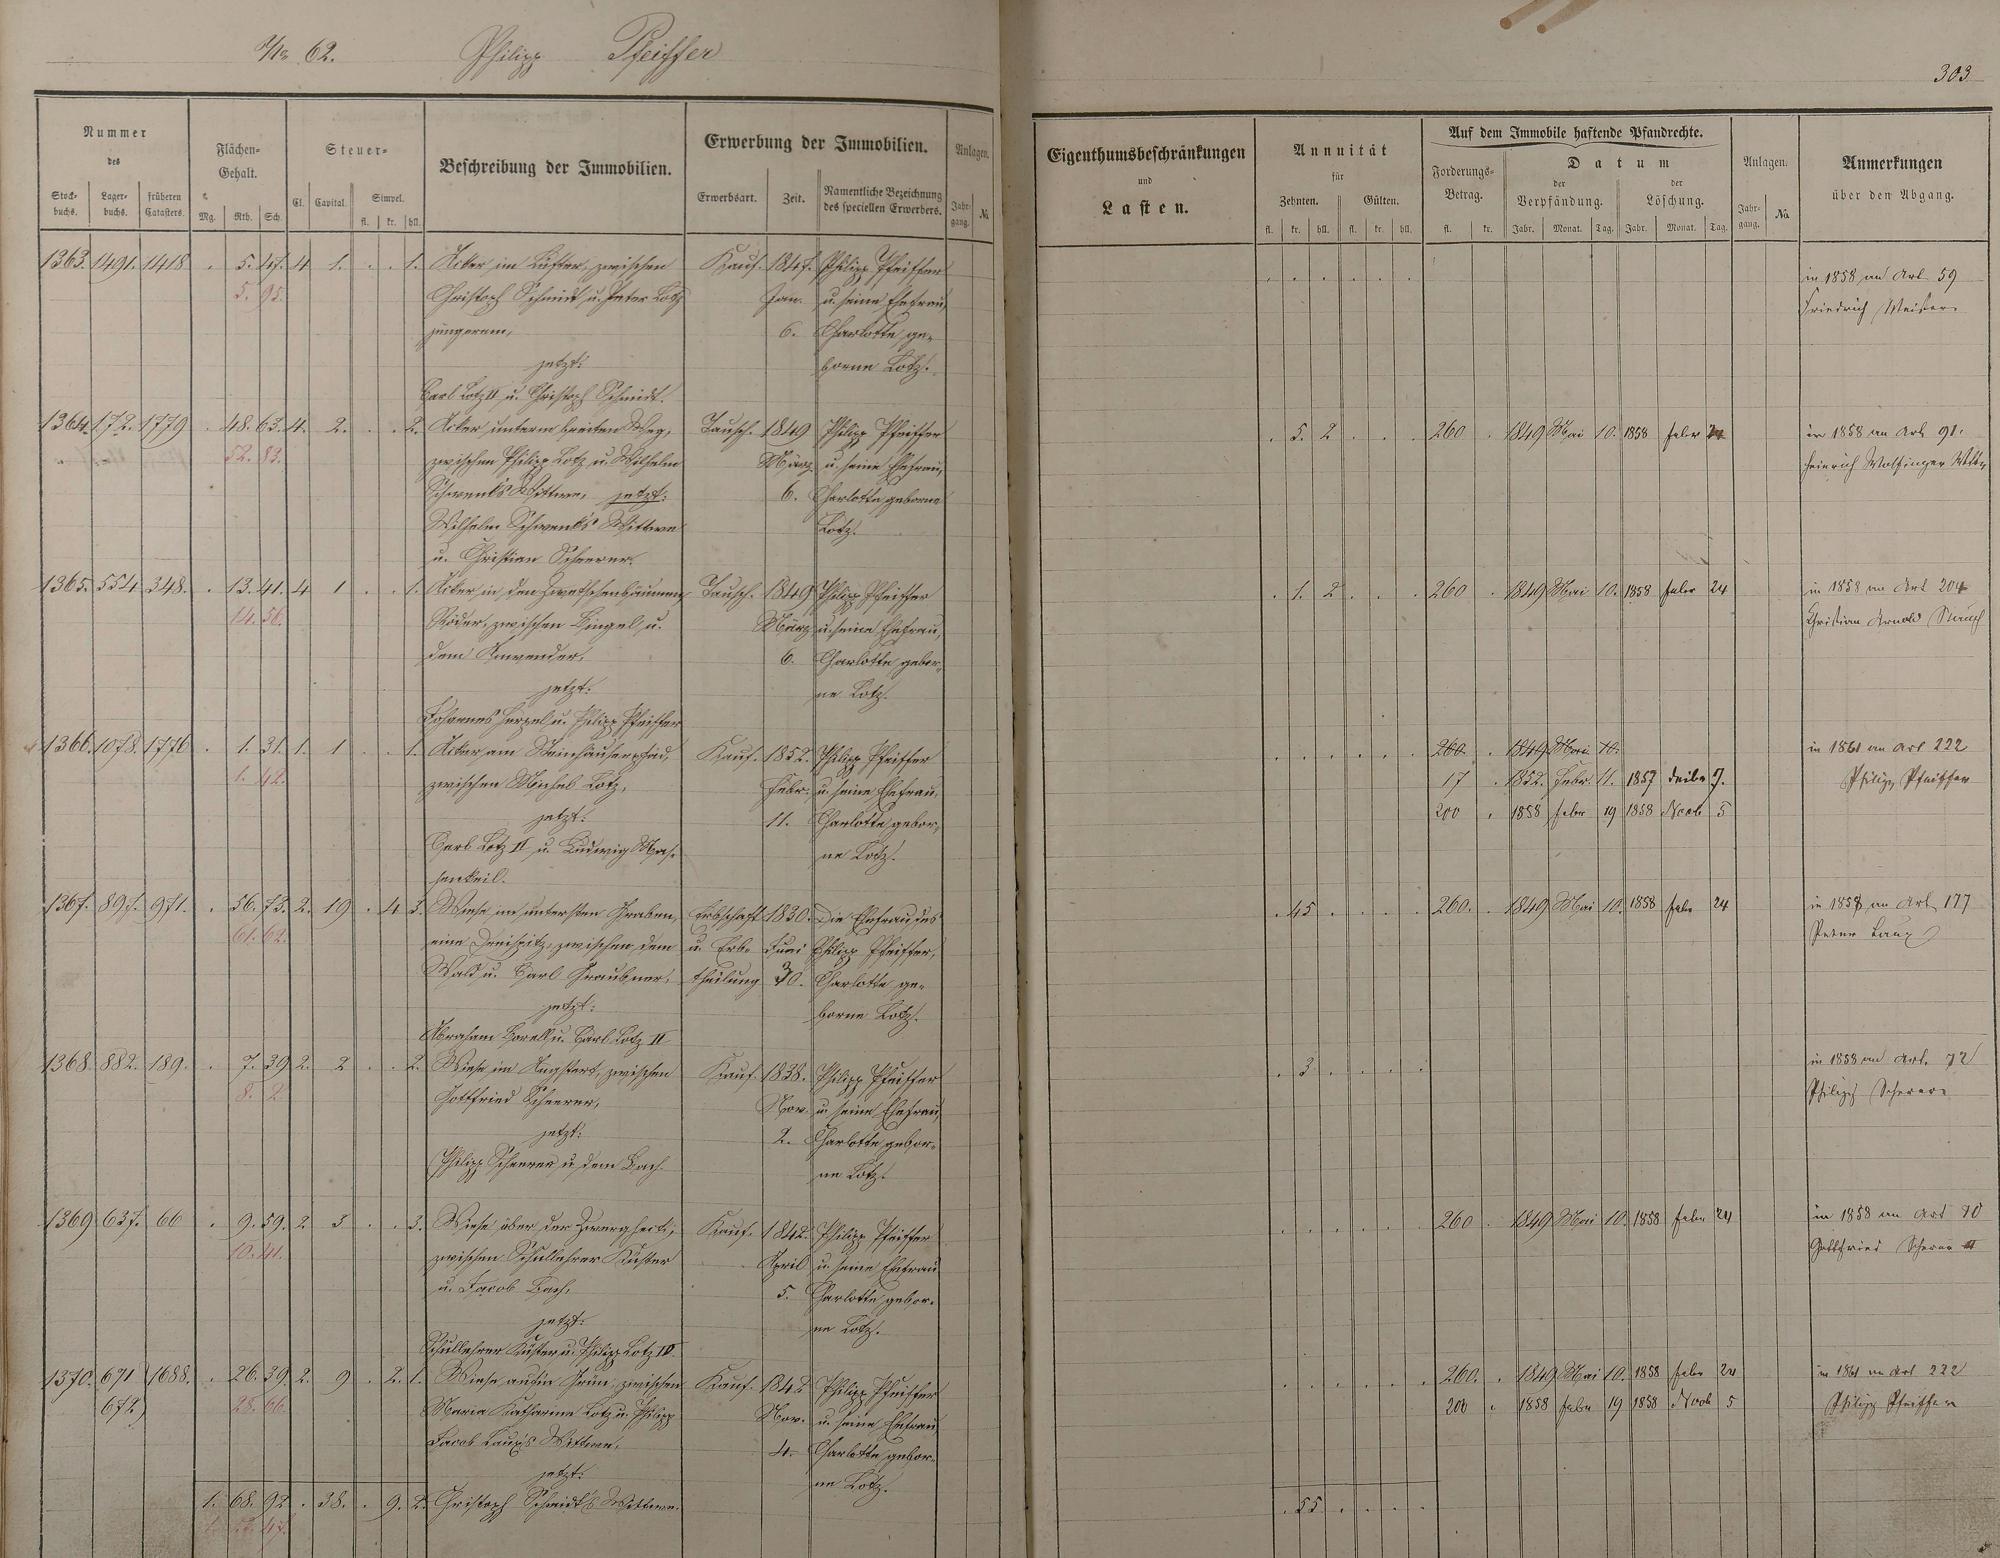 No 62. Philipp Pfeiffer
303
Nummer des
Stockbuchs. Lagerbuchs. früheren Catasters.
Flächen-Gehalt.
Mg. Rth. Sch.
Steuer-
Cl. Capital. Simpel.
fl. kr. hll.
Beschreibung der Immobilien.
Erwerbung der Immobilien.
Erwerbsart. Zeit. Namentliche Bezeichnung des speciellen Erwerbers.
Anlagen.
Jahrgang. №
Eigenthumsbeschränkungen und Lasten.
Annuität für
Zehnten. Gülten.
fl. kr. hll. fl. kr. hll.
Auf dem Immobile haftende Pfandrechte.
Forderungs-Betrag.
fl. kr.
Datum
der Verpfändung. der Löschung.
Jahr. Monat. Tag. Jahr. Monat. Tag.
Anlagen.
Jahrgang. №
Anmerkungen über den Abgang.
1363. 1491. 1418 . 5. 47. 4 1. . . 1. Acker im Lüfter, zwischen Kauf. 1847. Philipp Pfeiffer in 1858 an Art. 59
5. 95. Christoph Schmidt u. Peter Lotz Jan. u. seine Ehefrau, Friedrich Meister
jüngerem, 6. Charlotte ge-
jetzt: borne Lotz.
Carl Lotz II u. Christoph Schmidt.
1364. 172. 1779 . 48. 63. 4. 2. . . 2. Acker unterm breiten Weg, Tausch. 1849 Philipp Pfeiffer . 5. 2 . . . 260 . 1849 Mai 10. 1858 Febr 24 in 1858 an Art. 91.
52. 83. zwischen Philipp Lotz u. Wilhelm März u. seine Ehefrau, Heinrich Wolfinger Wttw
Schwenk's Wittwe, jetzt: 6. Charlotte geborne
Wilhelm Schwenk's Wittwe Lotz.
u. Christian Scheerer.
1365. 554 348. . 13. 41. 4 1 . . 1. Acker in den Zwetschenbäumen, Tausch. 1849 Philipp Pfeiffer . 1. 2 . . . 260 . 1849 Mai 10. 1858 Febr 24 in 1858 an Art 204
14. 56. Röder, zwischen Bingel u. März u. seine Ehefrau, Christian Arnold
dem Anwender, 6. Charlotte gebor-
jetzt: ne Lotz.
Johannes Hergel u. Philipp Pfeiffer
1366. 1078. 1776 . 1. 31. 1. 1 . . 1. Acker am Steinhäuserpfad, Kauf. 1852. Philipp Pfeiffer 260. . 1849 Mai 10. in 1861 an Art 222
1. 42. zwischen Michel Lotz, Febr. u. seine Ehefrau, 17 . 1852. Febr. 11. 1857 7. Philipp Pfeiffer
jetzt: 11. Charlotte gebor- 200 . 1858 Febr 19 1858 Novb 5
Carl Lotz II u. Ludwig Mas- ne Lotz.
senkeil.
1367. 897. 971. . 56. 73. 2. 19 . 4 3. Wiese im untersten Graben, Erbschaft 1830. Die Ehefrau des . 45 . . . . 260. . 1849 Mai 10. 1858 Febr 24 in 1858 an Art 177
61. 62. eine Dreispitz, zwischen dem u. Erb- Juni Philipp Pfeiffer, Peter Laux
Wald u. Carl Graubner, theilung 30. Charlotte ge-
jetzt: borne Lotz.
Abraham Borell u. Carl Lotz II
1368. 882. 189. . 7. 39 2. 2 . . 2. Wiese im Angstert, zwischen Kauf. 1838. Philipp Pfeiffer . 3 . . . . in 1858 an Art. 72
8. 2. Gottfried Scheerer, Nov. u. seine Ehefrau, Philipp Scherer
jetzt: 2. Charlotte gebor-
Philipp Scheerer u. dem Bach. ne Lotz.
1369 637. 66 . 9. 59. 2. 3 . . 3. Wiese über der Zwerghecke, Kauf. 1842. Philipp Pfeiffer 260 . 1849 Mai 10. 1858 Febr 24 in 1858 an Art 70
10. 41. zwischen Schullehrer Küster April u. seine Ehefrau Gottfried Scherer III
u. Jacob Bach, 5. Charlotte gebor-
jetzt: ne Lotz.
Schullehrer Küster u. Philipp Lotz IV.
1370. 671 1688. . 26. 39 2. 9 . 2. 1. Wiese auf'm Grün, zwischen Kauf. 1842 Philipp Pfeiffer 260. . 1849 Mai 10. 1858 Febr 24 in 1861 an Art 222
672 28. 66. Maria Katharina Lotz u. Philipp Nov. u. seine Ehefrau 200 . 1858 Febr 19 1858 Novb 5 Philipp Pfeiffer
Jacob Laux's Wittwe, 4. Charlotte gebor-
jetzt: ne Lotz.
1. 68. 92 . 38. . 9. 2. Christoph Schmidt's Wittwe. . 55 . . . .